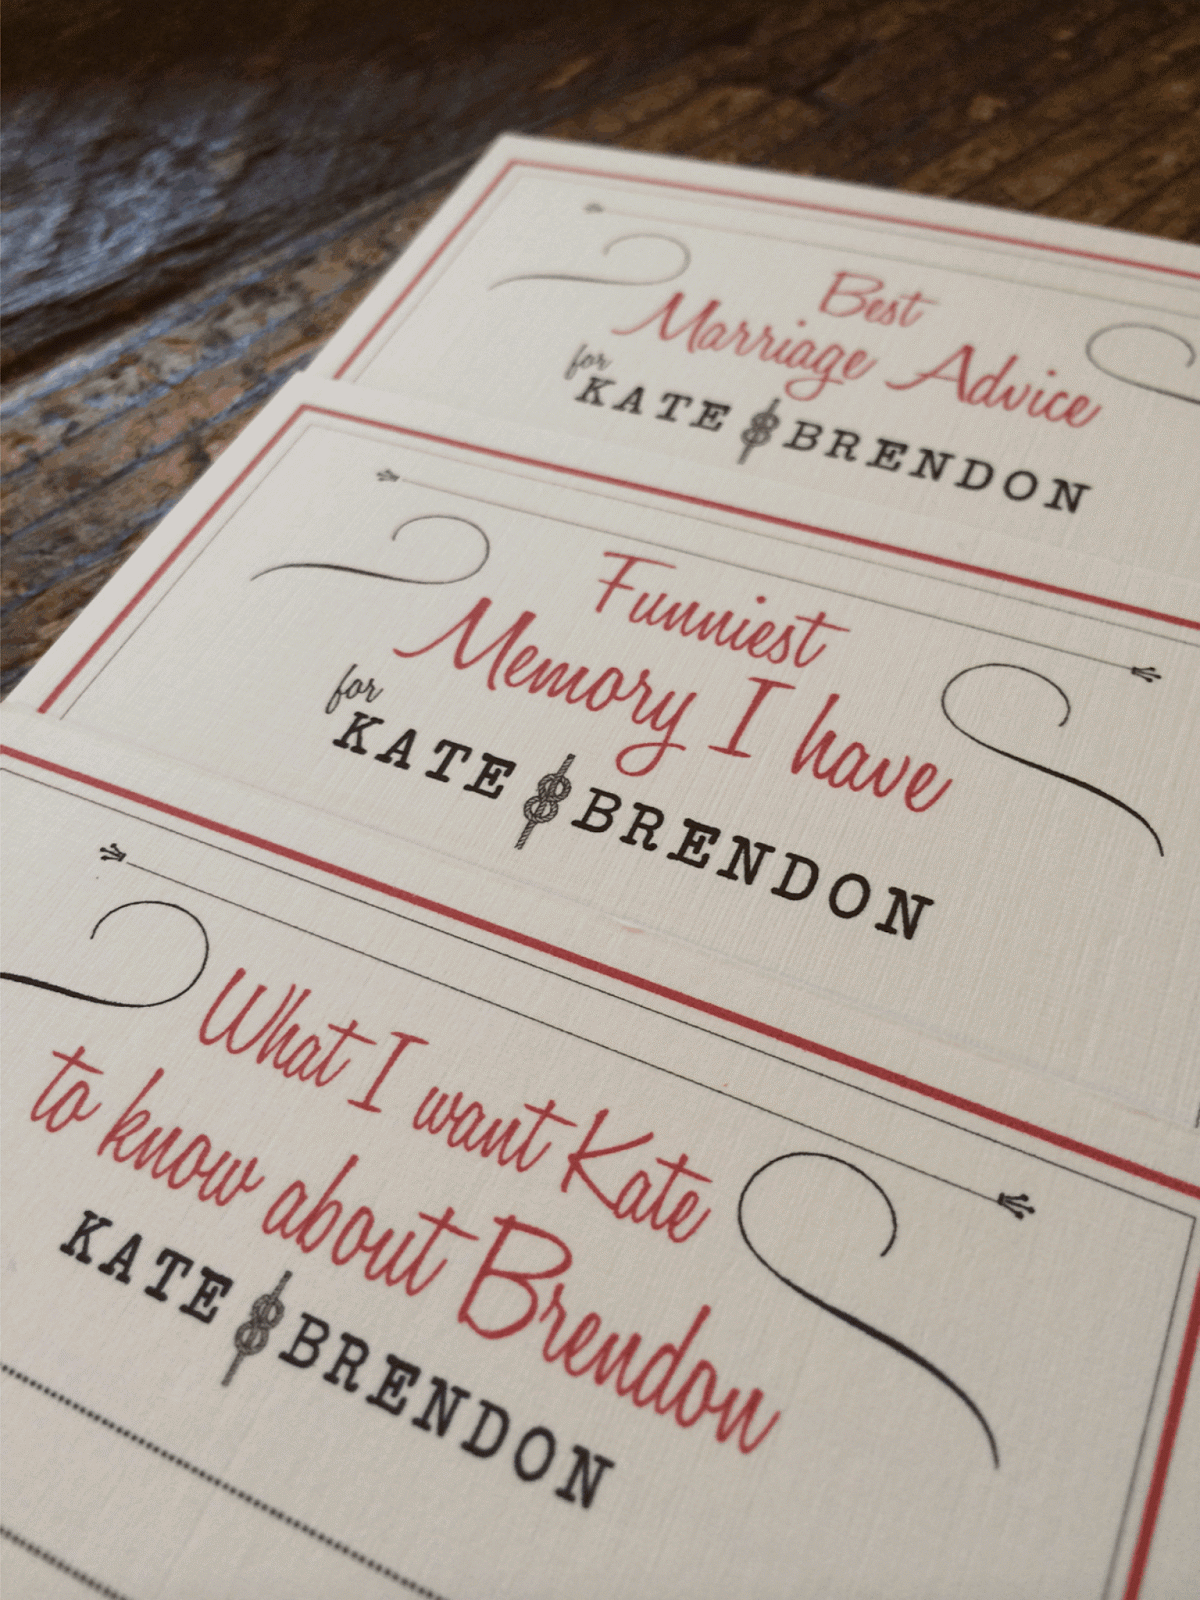 Best
Marriage Advice
for
KATE & BRENDON
Funniest
Memory I have
for
KATE & BRENDON
What I want Kate
to know about Brendon
KATE & BRENDON